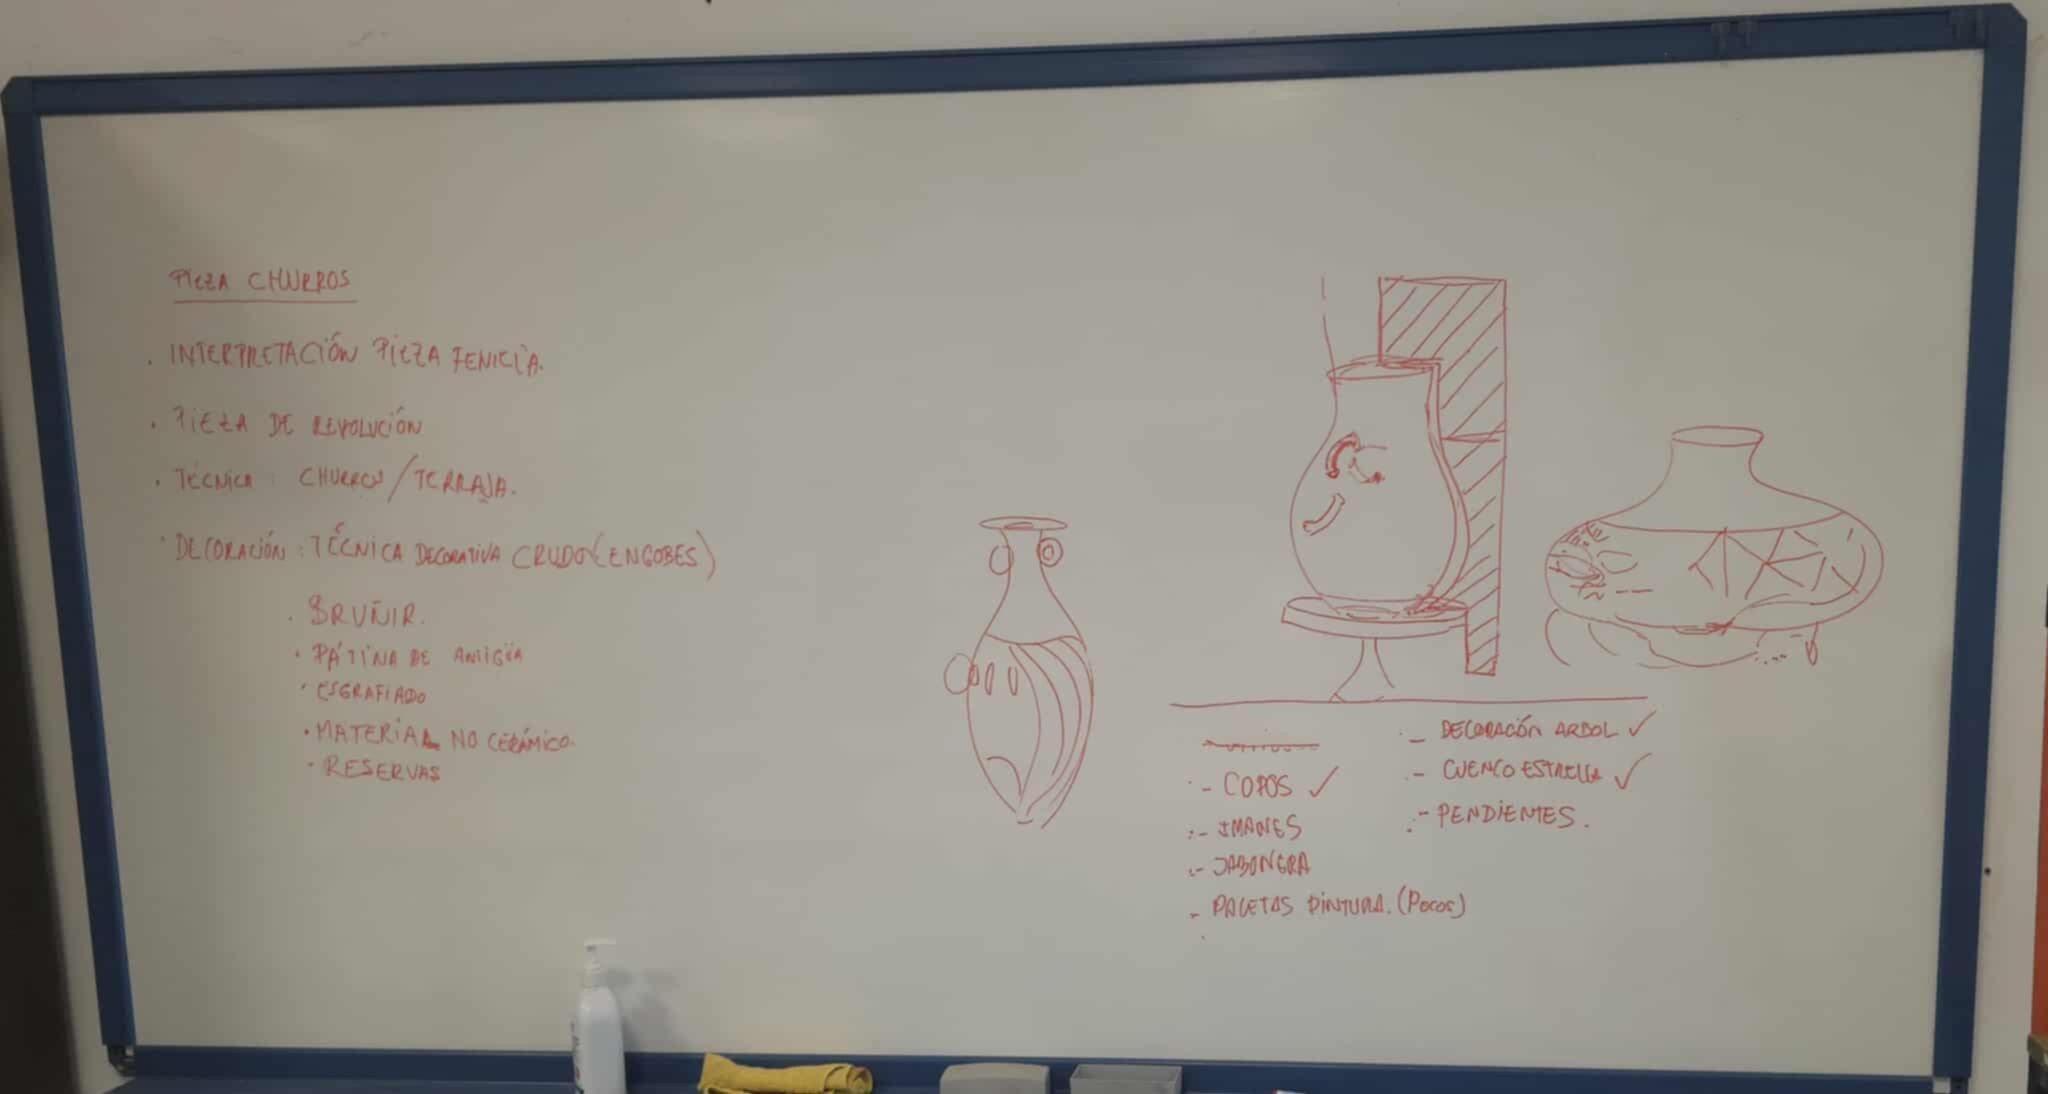 PIEZA CHURROS
. INTERPRETACIÓN PIEZA FENICIA.
. PIEZA DE REVOLUCIÓN
. TÉCNICA : CHURROS/TERRAJA.
. DECORACIÓN : TÉCNICA DECORATIVA CRUDO (ENGOBES)
. BRUÑIR.
. PÁTINA DE
. ESGRAFIADO
. MATERIAL NO CERÁMICO.
. RESERVAS
- COPOS ✓
- IMANES
- JABONERA
- PALETAS PINTURA. (POCOS)
- DECORACIÓN ARBOL ✓
- CUENCO ESTRELLA ✓
- PENDIENTES.